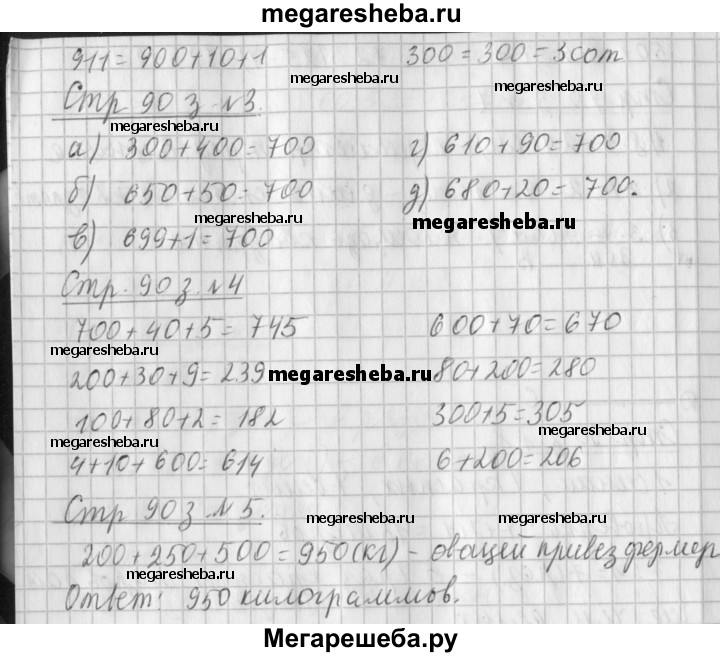 megaresheba.ru
911 = 900+10+1 300 = 300 = 3 сот
megaresheba.ru
Стр 90 з №3.
megaresheba.ru
megaresheba.ru
а) 300+400=700 г) 610+90=700
б) 650+50=700 д) 680+20= 700.
megaresheba.ru
megaresheba.ru
в) 699+1=700
Стр. 90 з №4
700+40+5= 745 600+70=670
megaresheba.ru
megaresheba.ru
200+30+9=239 80+200=280
megaresheba.ru
100+80+2= 182 300+5=305
megaresheba.ru
megaresheba.ru
4+10+600= 614 6+200=206
Стр 90 з №5.
megaresheba.ru
megaresheba.ru
200+250+500=950(кг) - овощей привез фермер
megaresheba.ru
megaresheba.ru
Ответ: 950 килограммов.
Мегарешеба.ру